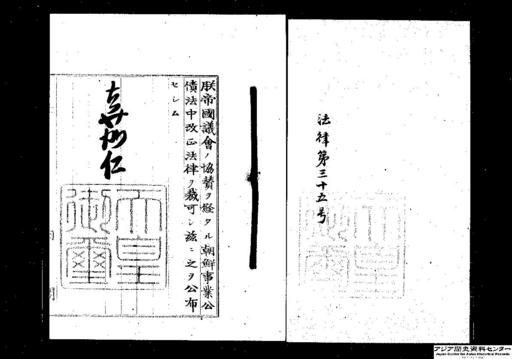 法律第三十五号
朕帝國議會ノ協賛ヲ経タル朝鮮事業公
債法中改正法律ヲ裁可シ茲ニ之ヲ公布
セシム
嘉仁
天皇
御璽
アジア歴史資料センター
Japan Center for Asian Historical Records